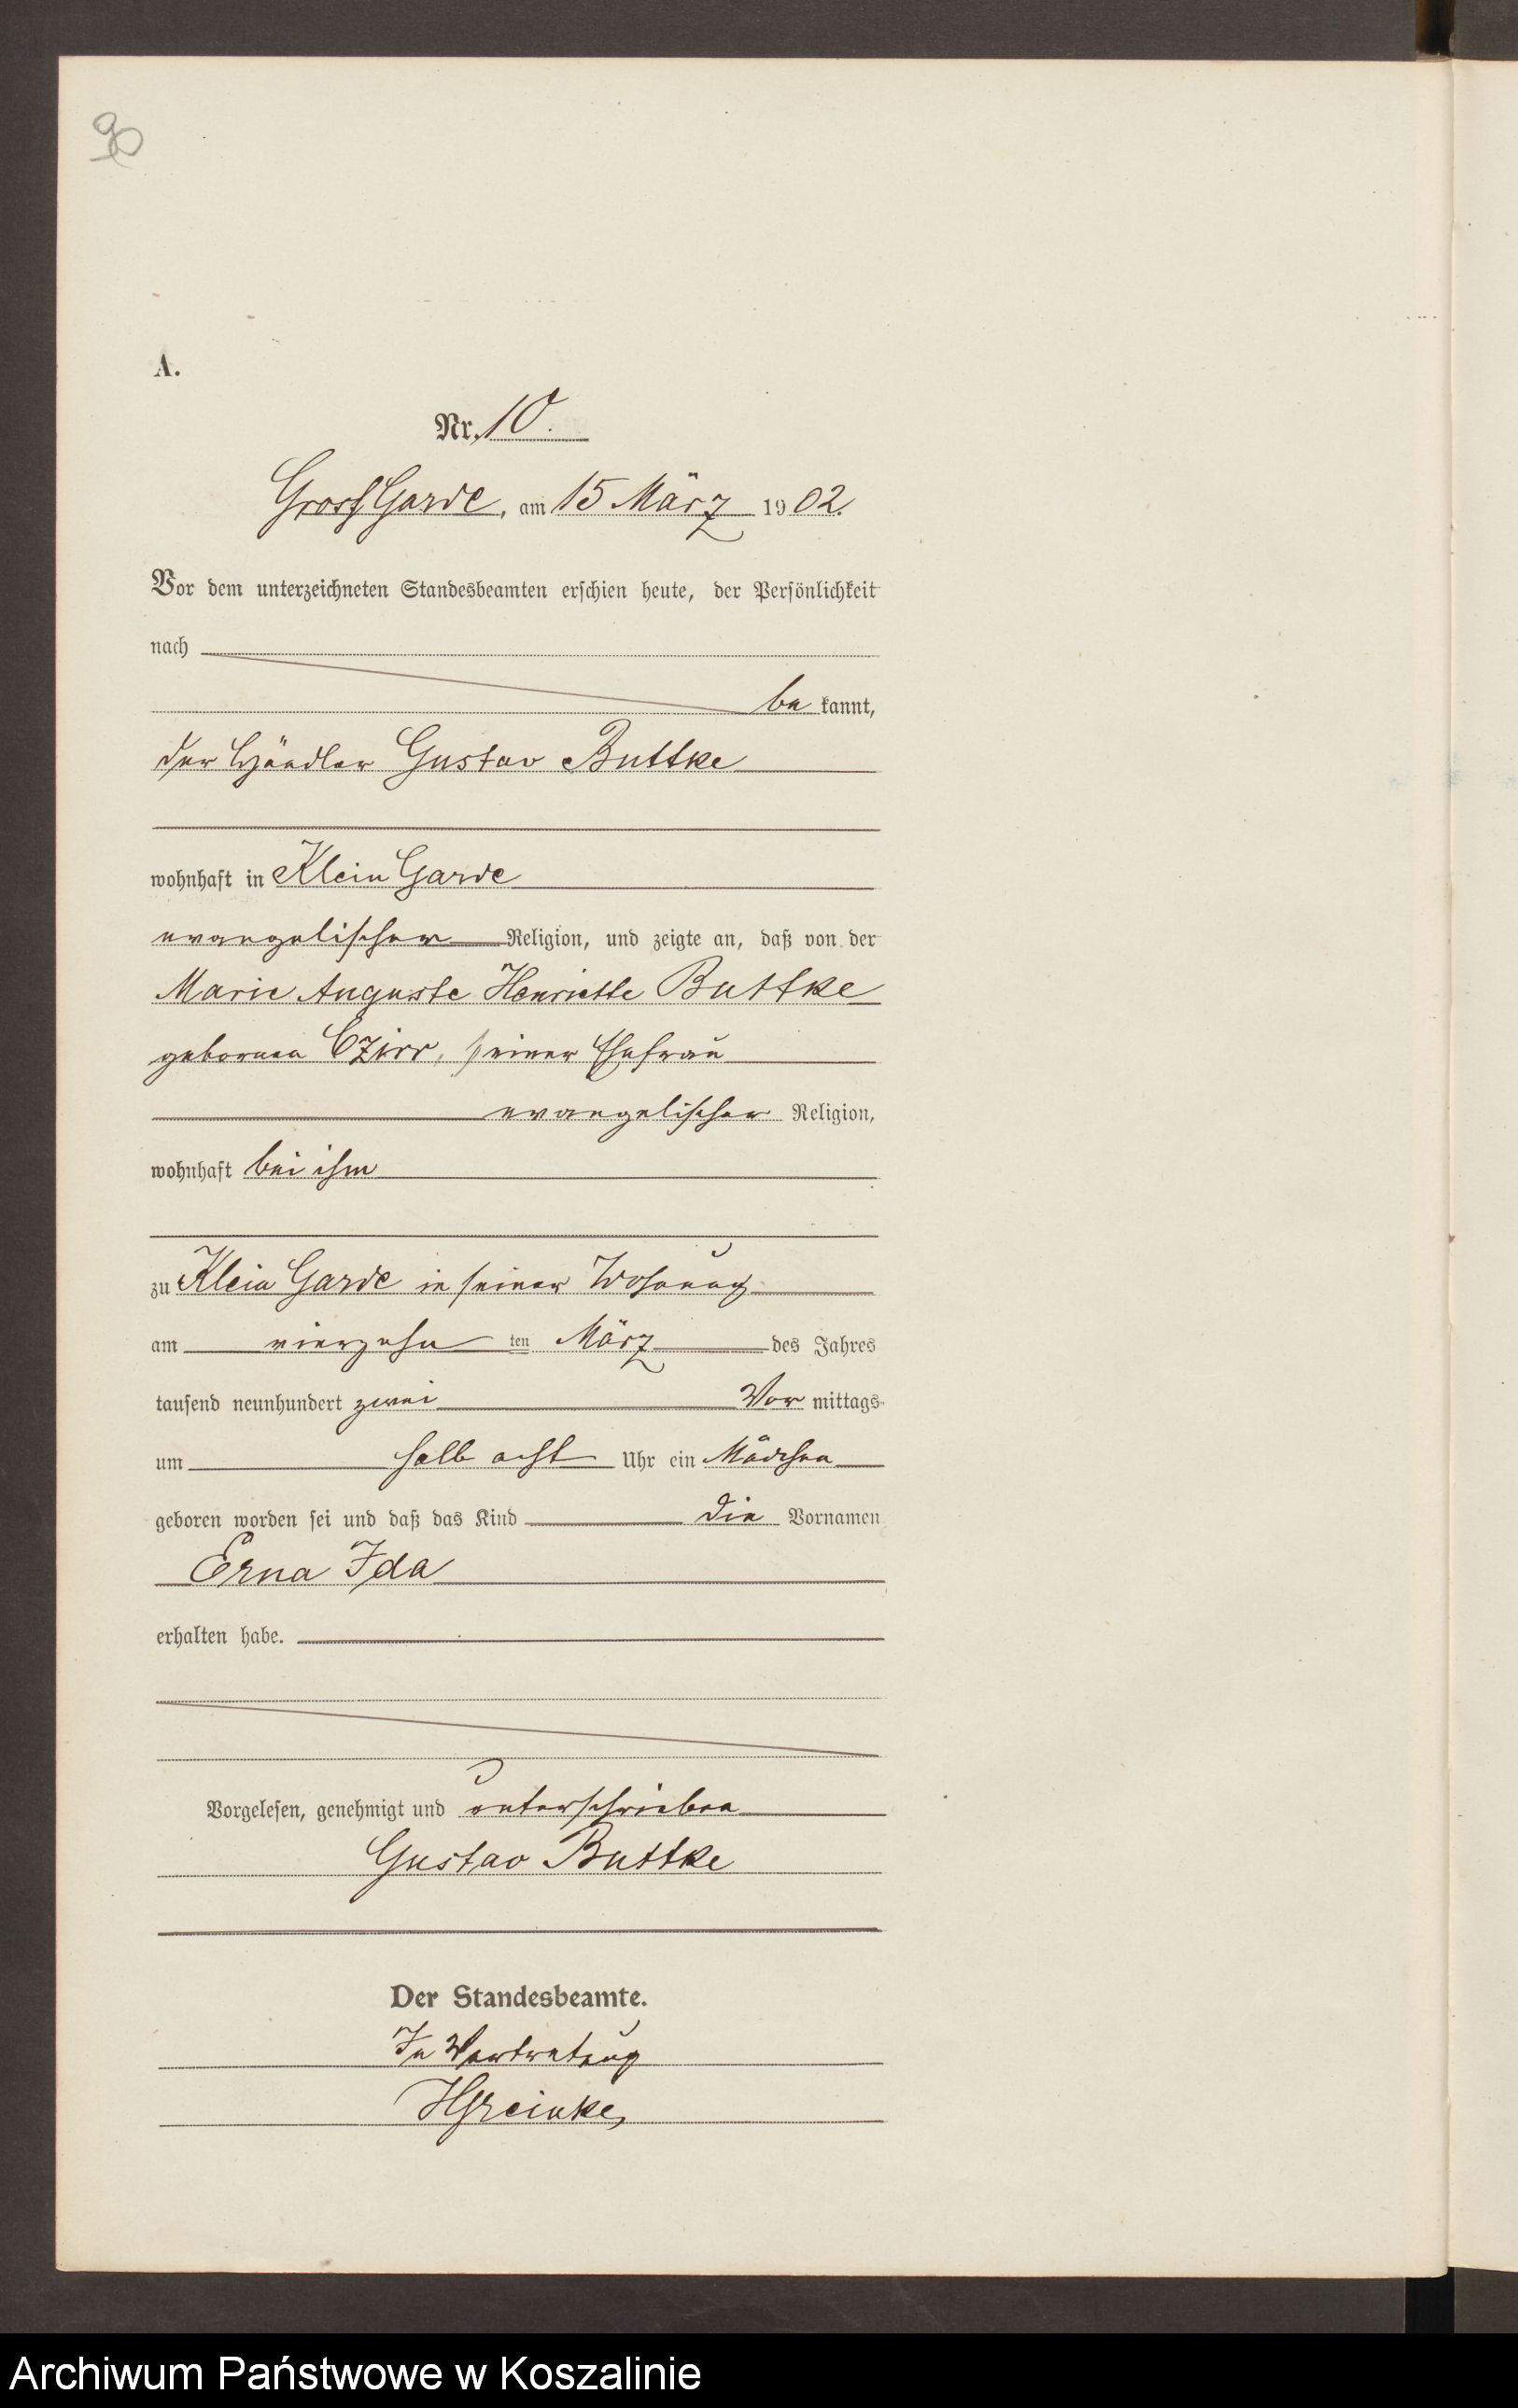 90
A.
Nr. 10.
Gross Garde, am 15 März 1902.
Vor dem unterzeichneten Standesbeamten erschien heute, der Persönlichkeit
nach
be kannt,
der Händler Gustav Buttke
wohnhaft in Klein Garde
evangelischer Religion, und zeigte an, daß von der
Marie Auguste Henriette Buttke
geborenen Czirr, seiner Ehefrau
evangelischer Religion,
wohnhaft bei ihm
zu Klein Garde in seiner Wohnung
am vierzehn ten März des Jahres
tausend neunhundert zwei Vor mittags
um halb acht Uhr ein Mädchen
geboren worden sei und daß das Kind die Vornamen
Erna Ida
erhalten habe.
Vorgelesen, genehmigt und unterschrieben
Gustav Buttke
Der Standesbeamte.
In Vertretung
Archiwum Państwowe w Koszalinie